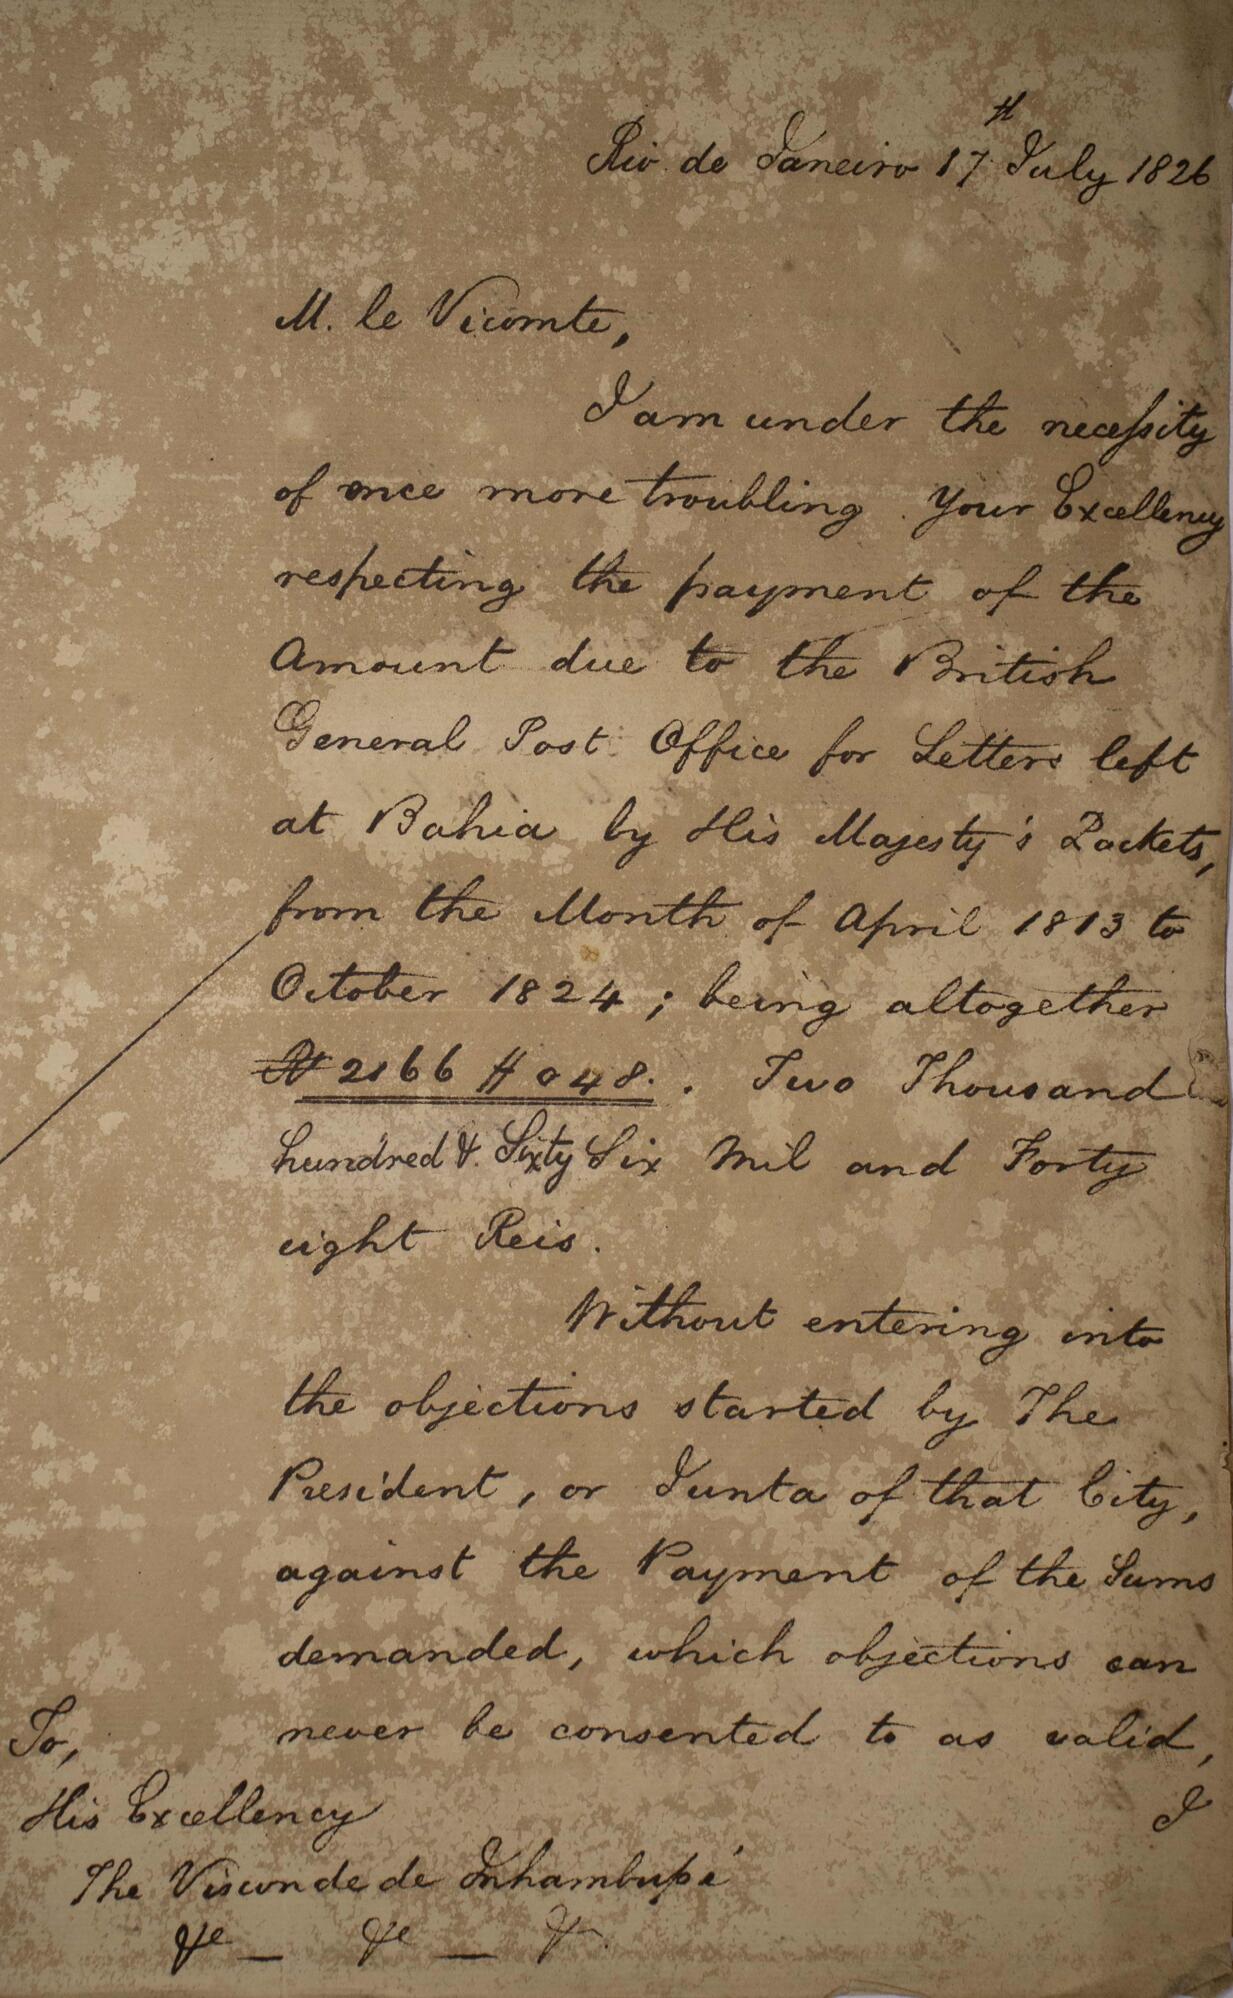 Rio de Janeiro 17th July 1826
M. le Vicomte,
I am under the necessity
of once more troubling Your Excellency
respecting the payment of the
Amount due to the British
General Post Office for Letters left
at Bahia by His Majesty's Packets,
from the Month of April 1813 to
October 1824; being altogether
2166 # 048. . Two Thousand
hundred & Sixty Six Mil and Forty
eight Reis.
Without entering into
the objections started by The
President, or Junta of that City,
against the Payment of the Sums
demanded, which objections can
never be consented to as valid,
I
To,
His Excellency
The Visconde de Inhambupé
&c — &c — &c.